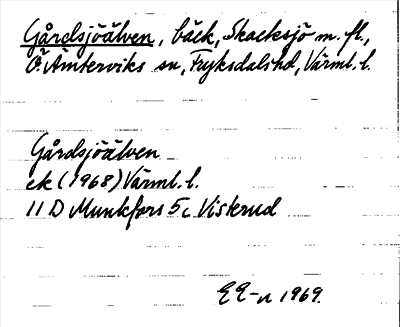 Gårdsjöälven, bäck, Skacksjö m. fl.,
Ö. Ämterviks sn, Fryksdals hd, Värml. l.
Gårdsjöälven
ek (1968) Värml. l.
11 D Munkfors 5 c Visterud
EE-n 1969.